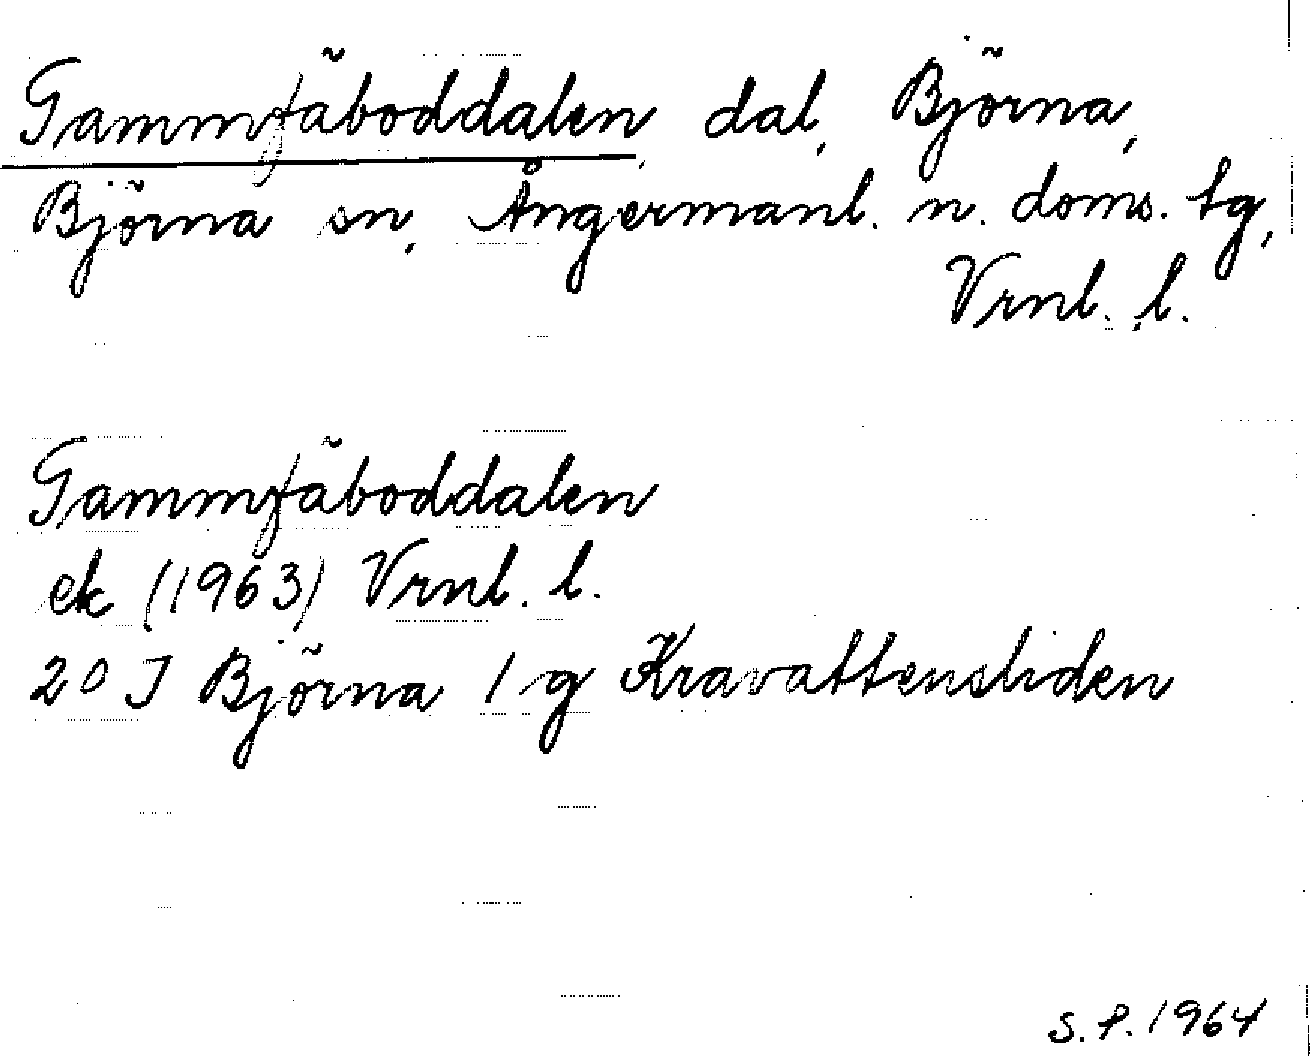 Gammfäboddalen, dal, Björna,
Björna sn, Ångermanl. n. doms. tg,
Vrnl. l.
Gammfäboddalen
ek (1963) Vrnl. l.
20 J Björna 1 g Kravattensliden
S.P. 1964